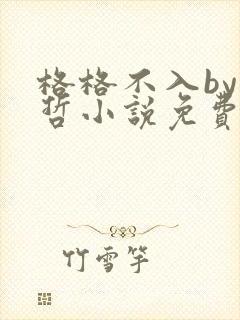 格格不入by
哲小說免費
竹雪竿